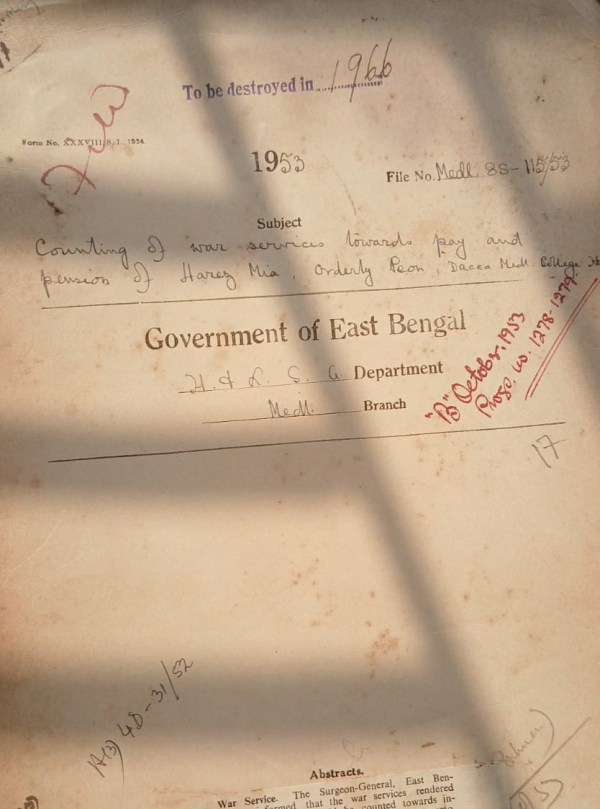 To be destroyed in 1966
Form No. XXXVIII
1953
File No. Medl. 8S-115/53
Subject
Counting of war services towards pay and
pension of Harez Mia, Orderly Peon, Dacca Medl. College
Government of East Bengal
H. & L. S. G. Department
Medl. Branch
"B" October, 1953
Progs. No. 1278-1279
17
4D-31/52
Abstracts.
War Service. The Surgeon-General, East Ben-
informed that the war services rendered
counted towards in-